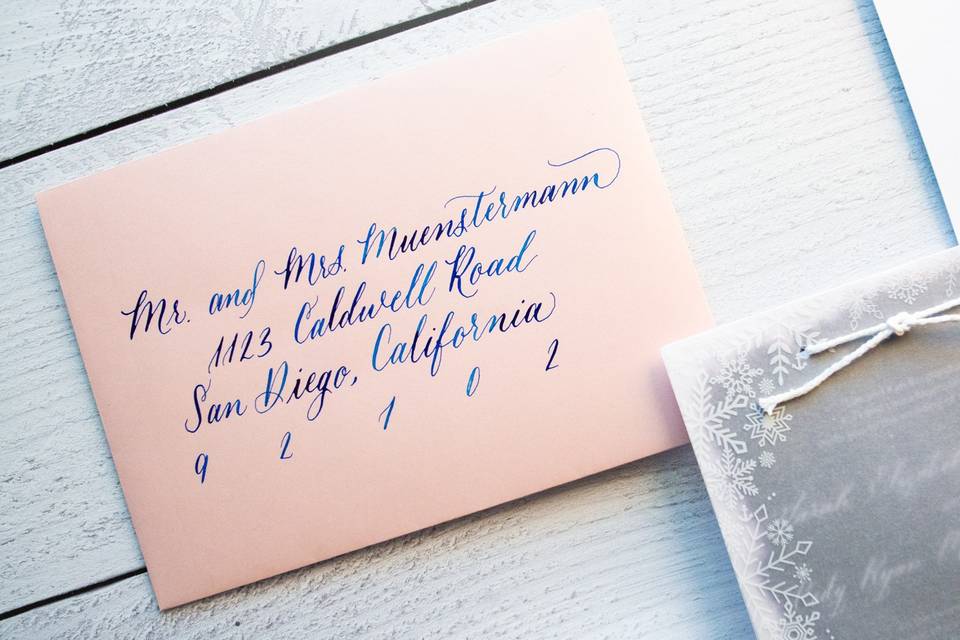 Mr. and Mrs. Muenstermann
1123 Caldwell Road
San Diego, California
9 2 1 0 2